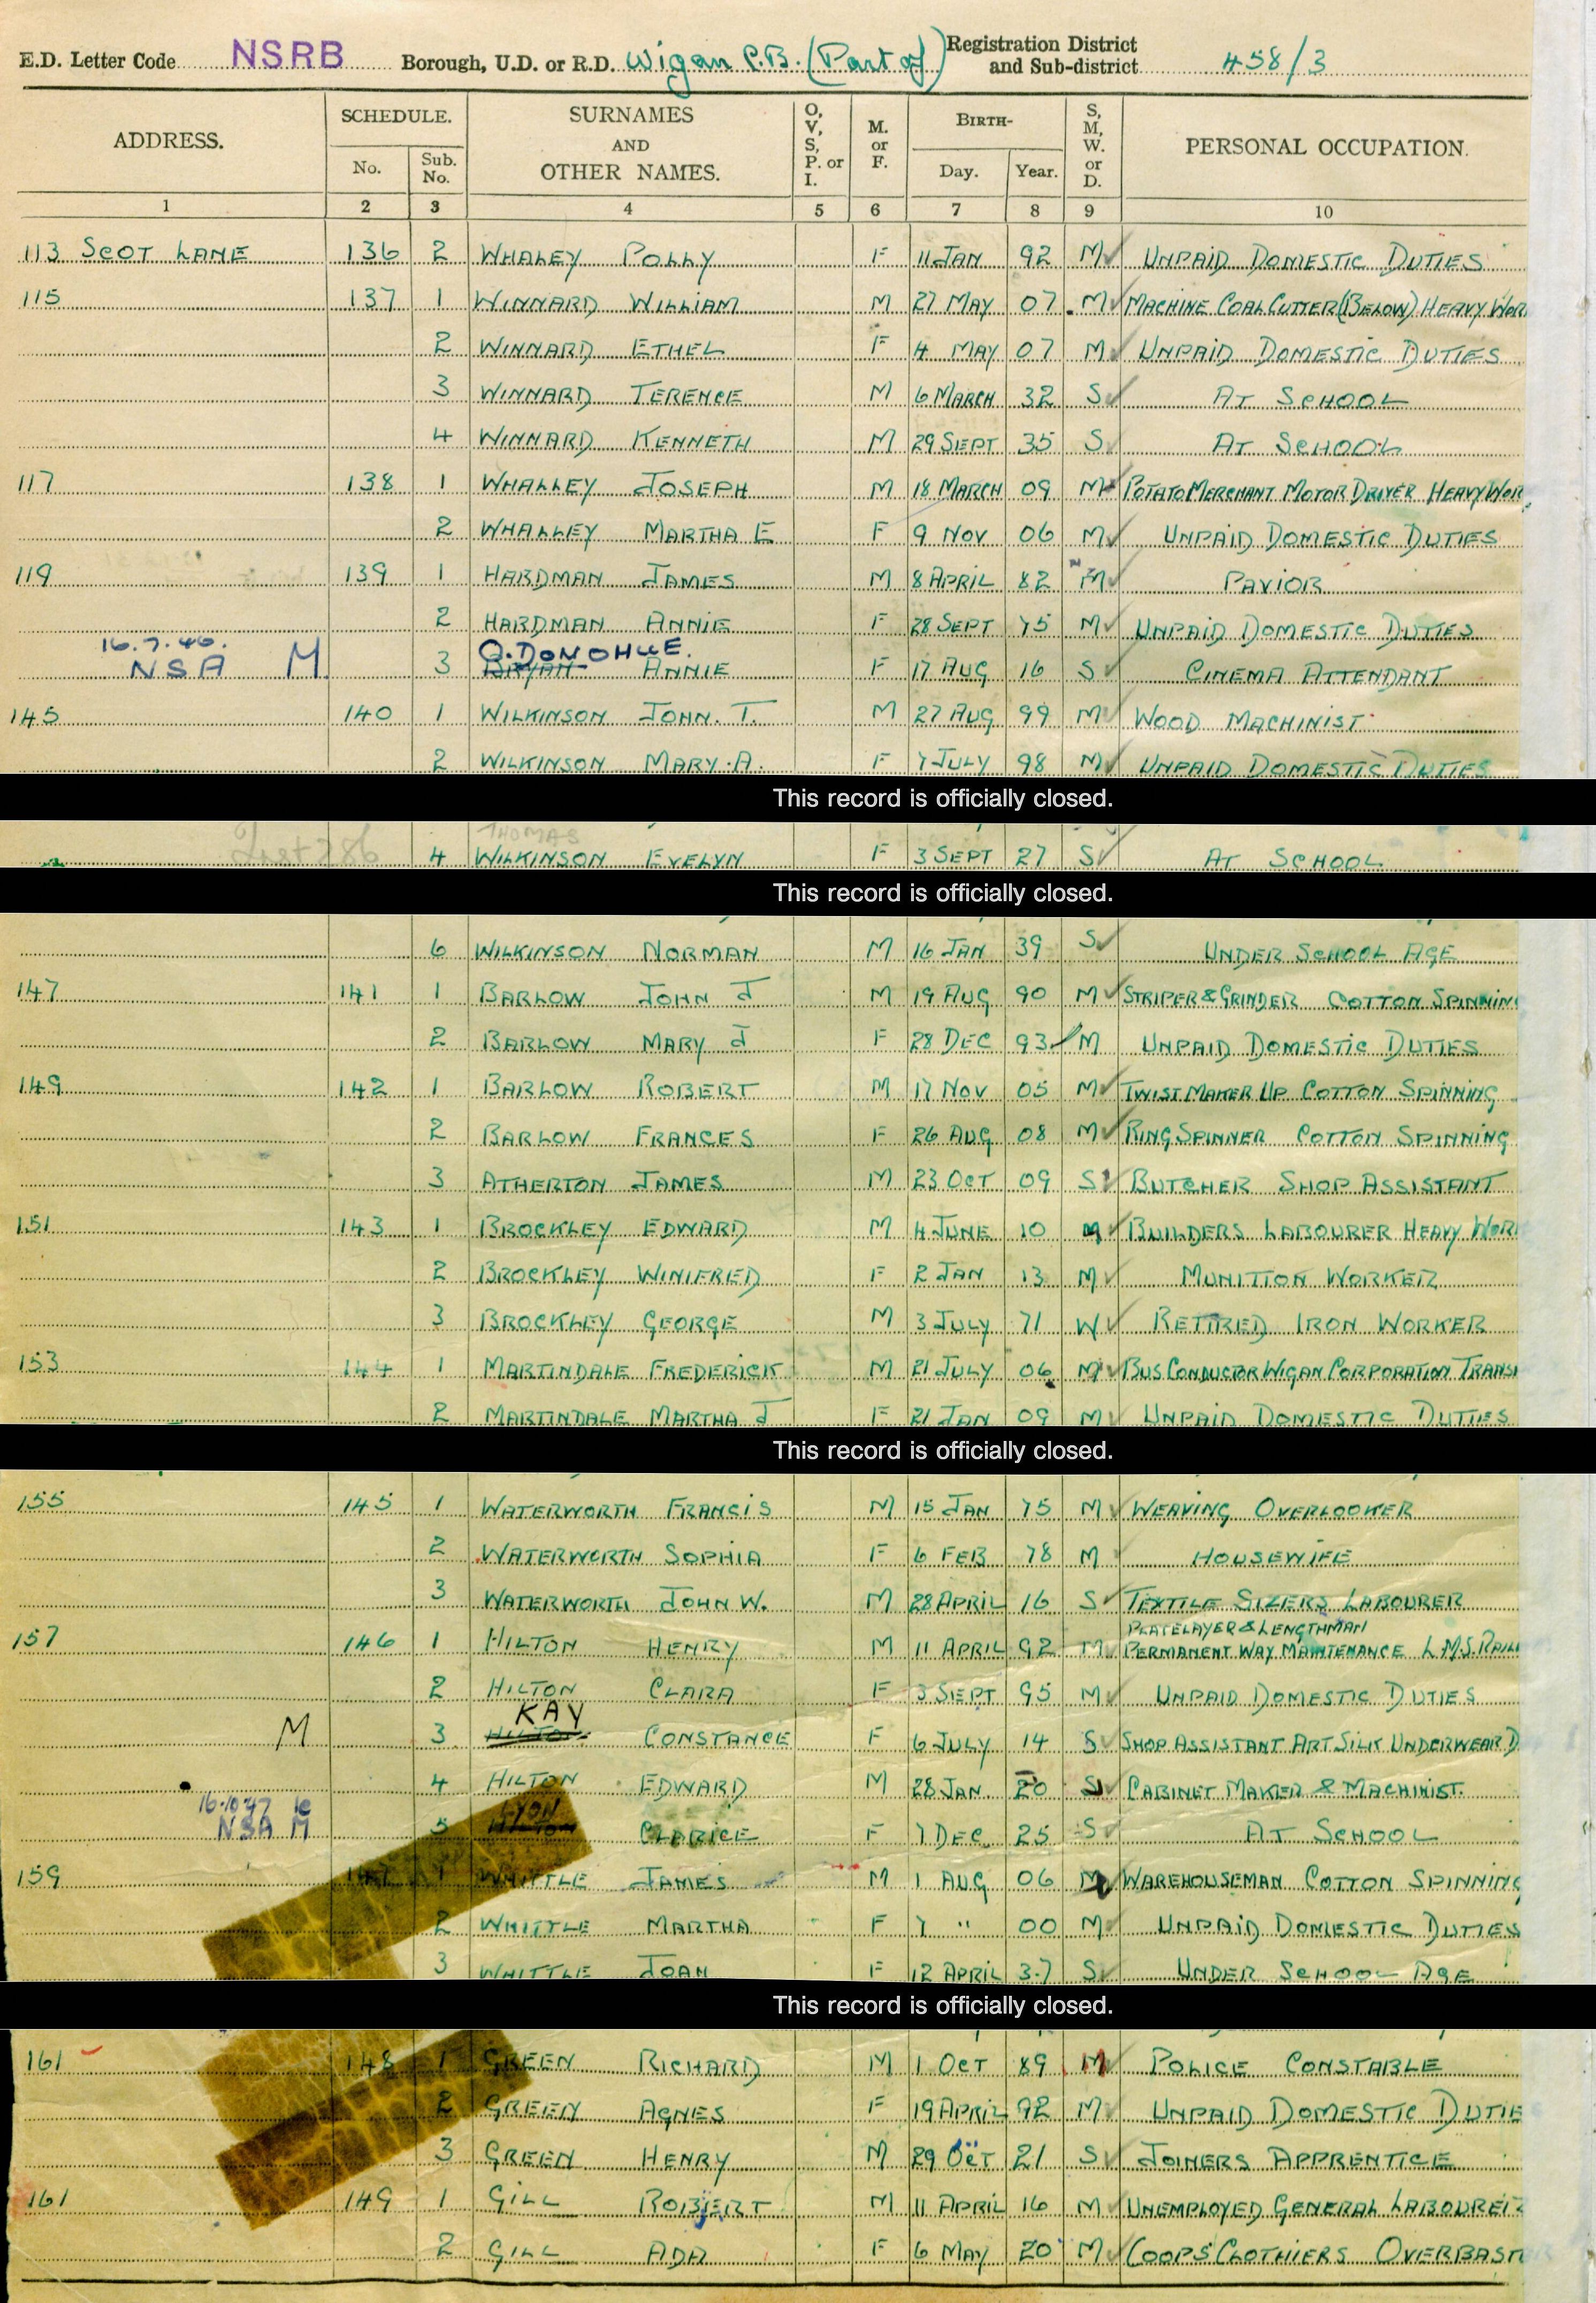 E.D. Letter Code NSRB Borough, U.D. or R.D. Wigan C.B. (Part of) Registration District and Sub-district 458/3
ADDRESS. SCHEDULE. No. Sub. No. SURNAMES AND OTHER NAMES. O, V, S, P. or I. M. or F. BIRTH- Day. Year. S, M, W. or D. PERSONAL OCCUPATION.
1 2 3 4 5 6 7 8 9 10
113 SCOT LANE 136 2 WHALEY POLLY F 11 JAN 92 M UNPAID DOMESTIC DUTIES
115 137 1 WINNARD WILLIAM M 27 MAY 07 M MACHINE COAL CUTTER (BELOW) HEAVY WOR
2 WINNARD ETHEL F 4 MAY 07 M UNPAID DOMESTIC DUTIES
3 WINNARD TERENCE M 6 MARCH 32 S AT SCHOOL
4 WINNARD KENNETH M 29 SEPT 35 S AT SCHOOL
117 138 1 WHALLEY JOSEPH M 18 MARCH 09 M POTATO MERCHANT MOTOR DRIVER HEAVY WOR
2 WHALLEY MARTHA E F 9 NOV 06 M UNPAID DOMESTIC DUTIES
119 139 1 HARDMAN JAMES M 8 APRIL 82 M PAVIOR
2 HARDMAN ANNIE F 28 SEPT 75 M UNPAID DOMESTIC DUTIES
16.7.46. O.DONOHUE.
NSA M 3 BRYAN ANNIE F 17 AUG 16 S CINEMA ATTENDANT
145 140 1 WILKINSON JOHN. T. M 27 AUG 99 M WOOD MACHINIST
2 WILKINSON MARY.A. F 7 JULY 98 M UNPAID DOMESTIC DUTIES
This record is officially closed.
THOMAS
4 WILKINSON EVELYN F 3 SEPT 27 S AT SCHOOL
This record is officially closed.
6 WILKINSON NORMAN M 16 JAN 39 S UNDER SCHOOL AGE
147 141 1 BARLOW JOHN J M 19 AUG 90 M STRIPER & GRINDER COTTON SPINNIN
2 BARLOW MARY J F 28 DEC 93 M UNPAID DOMESTIC DUTIES
149 142 1 BARLOW ROBERT M 17 NOV 05 M TWIST MAKER UP COTTON SPINNING
2 BARLOW FRANCES F 26 AUG 08 M RING SPINNER COTTON SPINNING
3 ATHERTON JAMES M 23 OCT 09 S BUTCHER SHOP ASSISTANT
151 143 1 BROCKLEY EDWARD M 4 JUNE 10 M BUILDERS LABOURER HEAVY WOR
2 BROCKLEY WINIFRED F 2 JAN 13 M MUNITION WORKER
3 BROCKLEY GEORGE M 3 JULY 71 W RETIRED IRON WORKER
153 144 1 MARTINDALE FREDERICK M 21 JULY 06 M BUS CONDUCTOR WIGAN CORPORATION TRANS
2 MARTINDALE MARTHA J F 21 JAN 09 M UNPAID DOMESTIC DUTIES
This record is officially closed.
155 145 1 WATERWORTH FRANCIS M 15 JAN 75 M WEAVING OVERLOOKER
2 WATERWORTH SOPHIA F 6 FEB 78 M HOUSEWIFE
3 WATERWORTH JOHN W. M 28 APRIL 16 S TEXTILE SIZERS LABOURER
PLATELAYER & LENGTHMAN
157 146 1 HILTON HENRY M 11 APRIL 92 M PERMANENT WAY MAINTENANCE L.M.S. RAIL
2 HILTON CLARA F 3 SEPT 95 M UNPAID DOMESTIC DUTIES
KAY
M 3 HILTON CONSTANCE F 6 JULY 14 S SHOP ASSISTANT ART SILK UNDERWEAR D
4 HILTON EDWARD M 28 JAN 20 S CABINET MAKER & MACHINIST.
16.10.47 LYON
NSA M 5 HILTON CLARICE F 7 DEC 25 S AT SCHOOL
159 147 1 WHITTLE JAMES M 1 AUG 06 M WAREHOUSEMAN COTTON SPINNING
2 WHITTLE MARTHA F 7 " 00 M UNPAID DOMESTIC DUTIES
3 WHITTLE JOAN F 12 APRIL 37 S UNDER SCHOOL AGE
This record is officially closed.
161 148 1 GREEN RICHARD M 1 OCT 89 M POLICE CONSTABLE
2 GREEN AGNES F 19 APRIL 92 M UNPAID DOMESTIC DUTIE
3 GREEN HENRY M 29 OCT 21 S JOINERS APPRENTICE
161 149 1 GILL ROBERT M 11 APRIL 16 M UNEMPLOYED GENERAL LABOURER
2 GILL ADA F 6 MAY 20 M COOPS CLOTHIERS OVERBAST